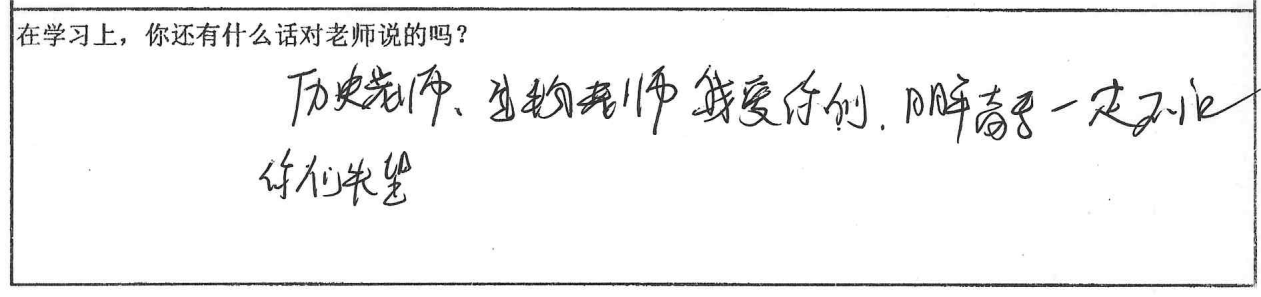 在学习上，你还有什么话对老师说的吗？
历史老师、生物老师 我爱你们．明年高考一定不让
你们失望